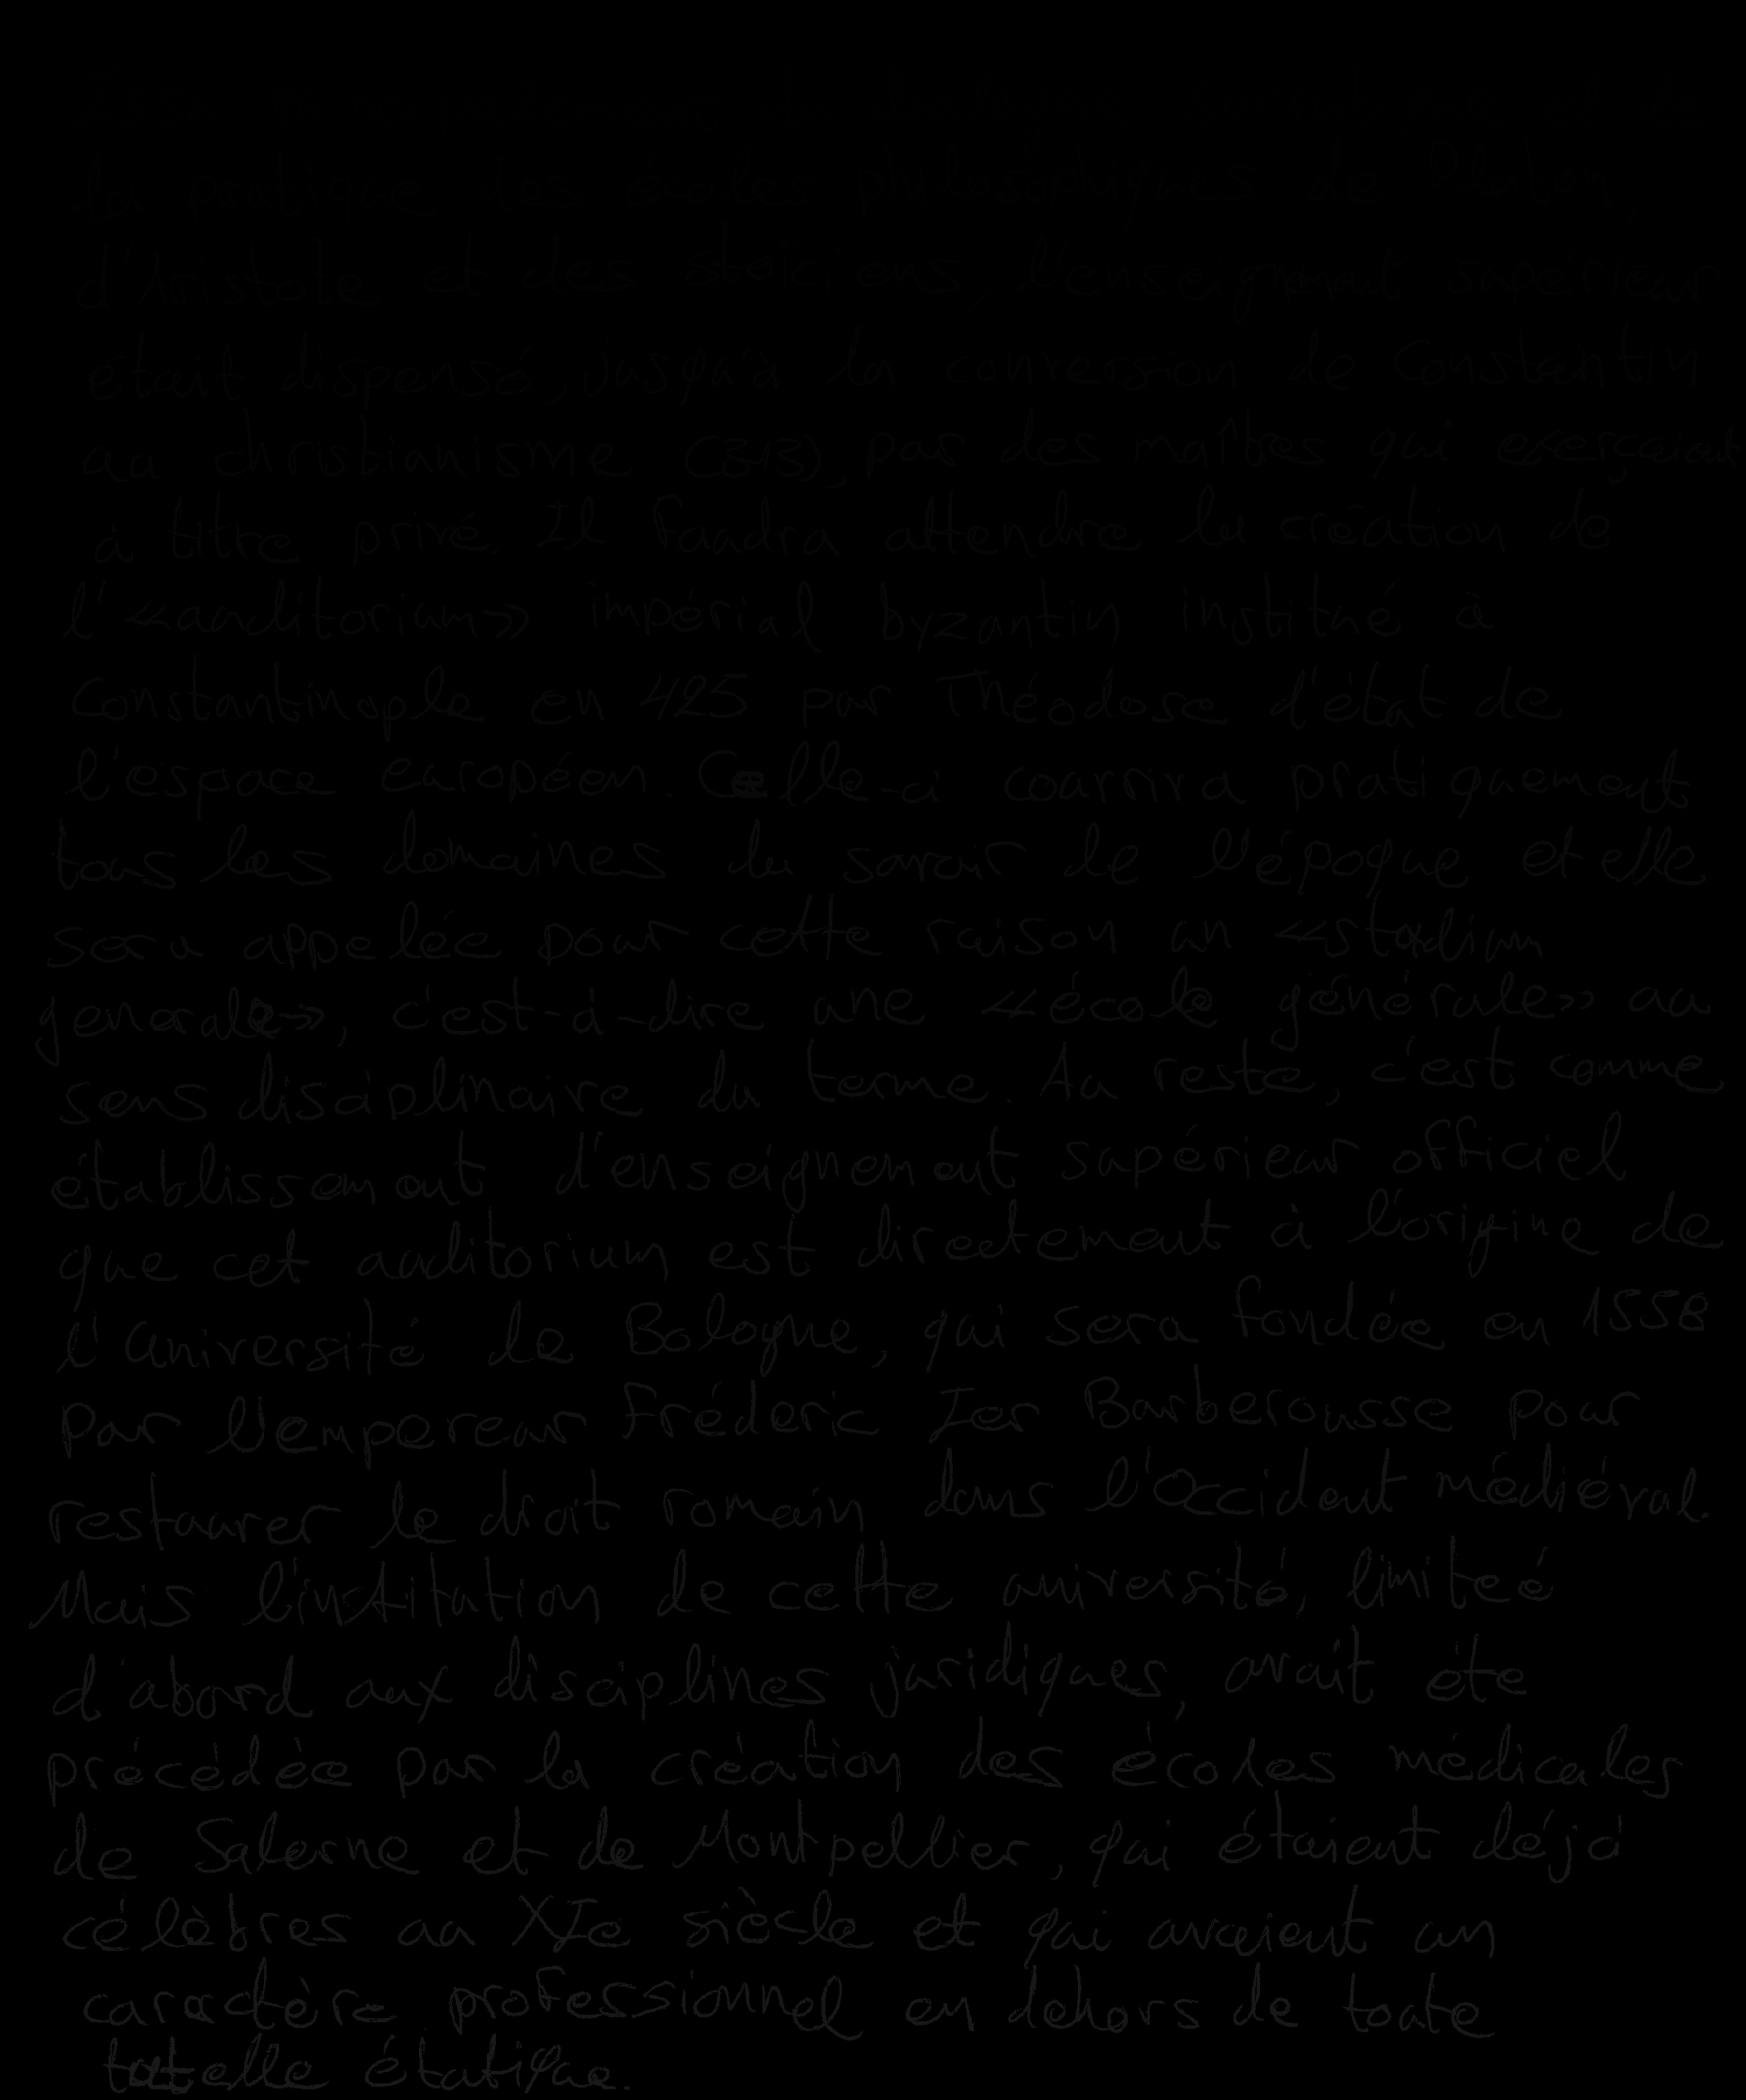 la pratique des écoles philosophiques de Platon,
d'Aristote et des stoïciens, l'enseignement supérieur
était dispensé, jusqu'à la conversion de Constantin
au christianisme (313), par des maîtres qui exerçaient
à titre privé. Il faudra attendre la création de
l'«auditorium» impérial byzantin institué à
Constantinople en 425 par Théodose d'état de
l'espace européen. Celle-ci couvrira pratiquement
tous les domaines du savoir de l'époque et elle
sera appelée pour cette raison un «studium
generale», c'est-à-dire une «école générale» au
sens disciplinaire du terme. Au reste, c'est comme
établissement d'enseignement supérieur officiel
que cet auditorium est directement à l'origine de
l'Université de Bologne, qui sera fondée en 1558
par l'empereur Fréderic Ier Barberousse pour
restaurer le droit romain dans l'Occident médiéval.
Mais l'institution de cette université, limiteé
d'abord aux disciplines juridiques, avait éte
précédée par la création des écoles médicales
de Salerne et de Montpellier, qui étaient déjà
célèbres au XIe siècle et qui avaient un
caractère professionnel en dehors de toute
tutelle étatique.